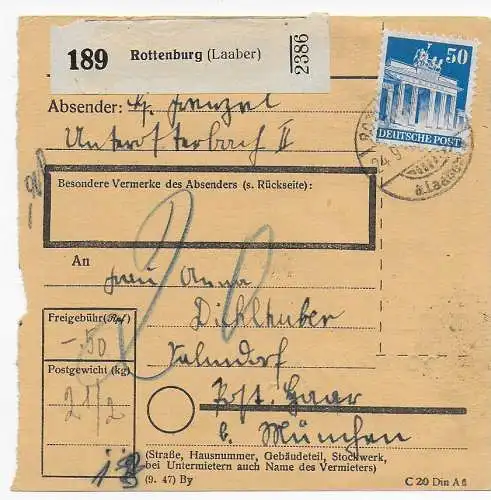 189 Rottenburg (Laaber) 2386
50
DEUTSCHE POST
24.9
a.Laaber
Absender: Frenzel
Unterösterbach II
Besondere Vermerke des Absenders (s. Rückseite):
An
Frau Anna
Dichlhuber
Salmdorf
Post Haar
b. München
Freigebühr (Rpf)
-.50
Postgewicht (kg)
2 1/2
(Straße, Hausnummer, Gebäudeteil, Stockwerk,
bei Untermietern auch Name des Vermieters)
(9. 47) By
C 20 Din A 6